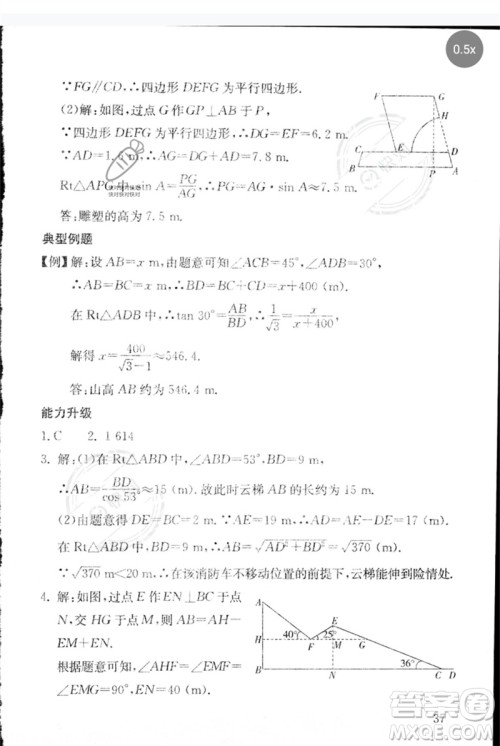 0.5x
∵FG∥CD,∴四边形 DEFG 为平行四边形.
(2)解:如图,过点 G 作 GP⊥AB 于 P,
∵四边形 DEFG 为平行四边形,∴DG=EF=6.2 m.
∵AD=1.6 m,∴AG=7.8 m.
Rt△APG 中,sin A=PG/AG,∴PG=AG·sin A≈7.5 m.
答:雕塑的高为 7.5 m.
F G H C E D A P B
典型例题
【例】解:设 AB=x m,由题意可知∠ACB=45°,∠ADB=30°,
∴AB=BC=x m,∴BD=BC+CD=(x+400)m.
在 Rt△ADB 中,∴tan 30°=AB/BD,∴1/√3=x/(x+400),
解得 x=400/(√3-1)≈546.4.
答:山高 AB 约为 546.4 m.
能力升级
1. C 2. 1 614
3. 解:(1)在 Rt△ABD 中,∠ABD=53°,BD=9 m,
∴AB=BD/cos 53°≈15(m).故此时云梯 AB 的长约为 15 m.
(2)由题意得 DE=BC=2 m,∵AE=19 m,∴AD=AE-DE=17(m).
在 Rt△ABD 中,BD=9 m,∴AB=√(AD²+BD²)=√370(m).
∵√370 m<20 m,∴在该消防车不移动位置的前提下,云梯能伸到险情处.
4. 解:如图,过点 E 作 EN⊥BC 于点
N,交 HG 于点 M,则 AB=AH-
EM+EN.
根据题意可得,∠AHF=∠EMF=
∠EMG=90°,EN=BH,
A E H 40° 25° F M G 36° B N C D
37
答案圈